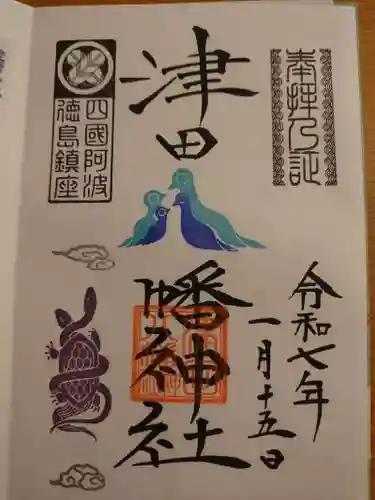 奉拝之証
令和七年
一月十五日
津田
幡神社
四國阿波
徳島鎮座